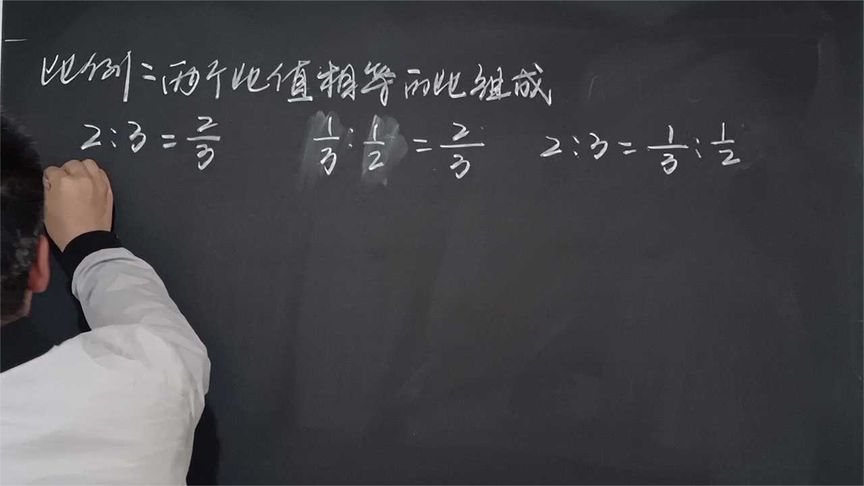 比例:两个比值相等的比组成
2:3=2/3 1/3:1/2=2/3 2:3=1/3:1/2